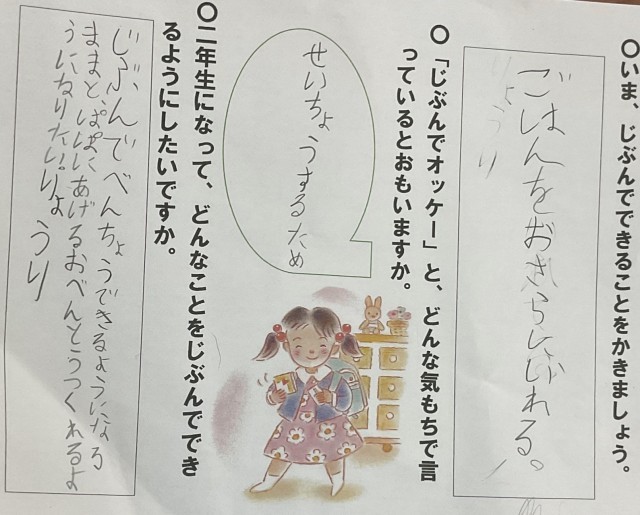 ○いま　じぶんでできることをかきましょう。
ごはんをおさらにいれる。
りょうり
○「じぶんでオッケー」と、どんな気もちで言
っているとおもいますか。
せいちょうするため
○二年生になって、どんなことをじぶんででき
るようにしたいですか。
じぶんでべんちょうできるようになる
ままとぱぱにあげるおべんとうつくれるよ
うになりたいりょうり